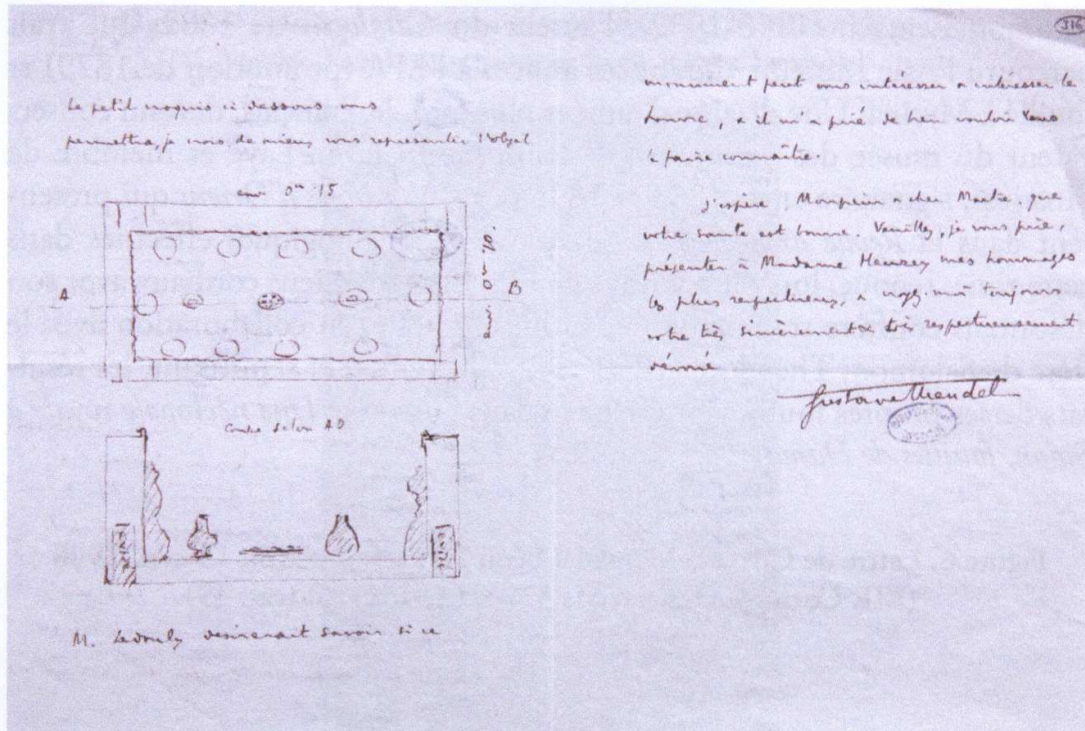 Le petit croquis ci dessous vous
permettra, je crois, de mieux vous représenter l'objet
env. 0m 15
A
B
env. 0m 10.
Coupe selon AB
M. Ledoulx desirerait savoir si ce
316
monument peut vous intéresser & intéresser le
Louvre, & il m'a prié de bien vouloir vous
en faire connaître.
J'espère Monsieur & cher Maître, que
votre santé est bonne. Veuillez, je vous prie,
présenter à Madame Heuzey mes hommages
les plus respectueux, & me toujours
votre très sincèrement & très respectueusement
dévoué
Gustave Mendel